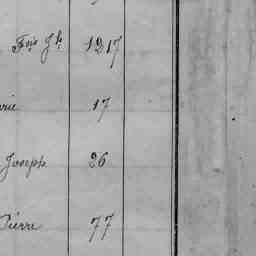 Fois Jh 1217
rie 17
Joseph 26
Pierre 77